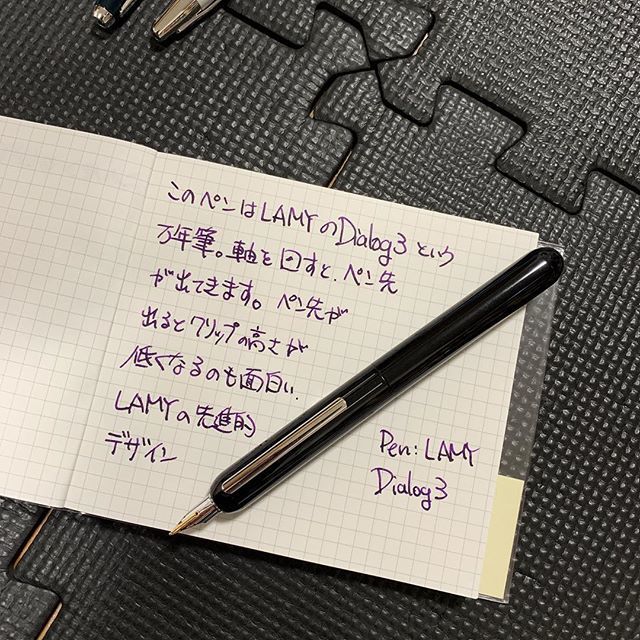 このペンはLAMYのDialog3という
万年筆。軸を回すと、ペン先
が出てきます。ペン先が
出るとクリップの高さが
低くなるのも面白い.
LAMYの先進的
デザイン
Pen: LAMY
Dialog3